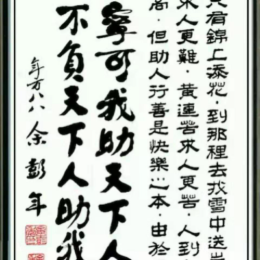 只有錦上添花，到那裡去找雪中送炭
求人更難，黃連苦求人更苦，人到
高，但助人行善是快樂之本，由於
寧可我助天下人
不負天下人助我
年方八八 余彭年